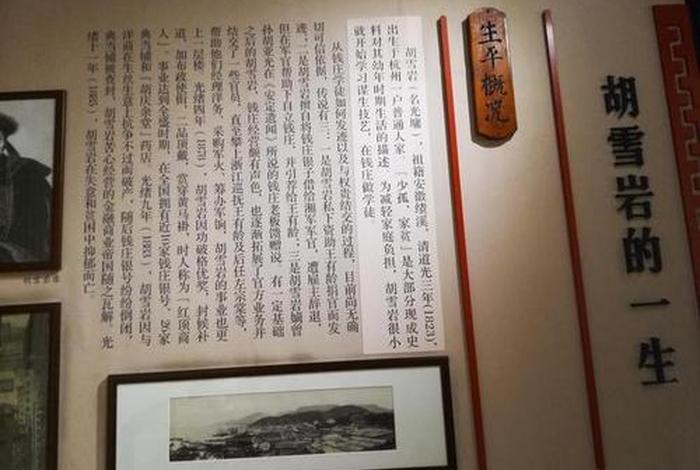 胡雪岩的一生
生平概况
胡雪岩（名光墉），祖籍安徽绩溪，清道光三年（1823），
出生于杭州一户普通人家。“少孤，家贫”是大部分现成史
料对其幼年时期生活的描述，为减轻家庭负担，胡雪岩很小
就开始学习谋生技艺，在钱庄做学徒。
从钱庄学徒如何发迹以及与权贵结交的过程，目前尚无确
切可信依据，传说有三：一是胡雪岩私下资助王有龄当官而发
迹，二是胡雪岩擅自将钱庄银子借给湘军军官，遭雇主辞退，
但在军官帮助下自立钱庄，并引荐给王有龄，三是胡雪岩嫡曾
孙胡亚光在《安定遗闻》所说的钱庄老板馈赠说。有一定基础
之后的胡雪岩，钱庄经营颇有声色，也逐渐拓展了官方业务并
结交了一些官员，直至攀上浙江巡抚王有龄及后任左宗棠等，
帮助他们经理洋务、采购军火、筹办军饷，胡雪岩的事业也更
上一层楼。光绪四年（1878），胡雪岩因功破格优奖，封候补
道，加布政使衔，二品顶戴，赏穿黄马褂，时人称为「红顶商
人」，事业达到全盛时期，在全国拥有近10家钱庄银号、26家
典当铺和「胡庆余堂」药店。光绪九年（1883），胡雪岩因与
洋商在生丝生意上抗争不过而破产，随后钱庄银号纷纷倒闭，
典当铺被查封，胡雪岩苦心经营的金融商业帝国随之瓦解。光
绪十一年（1885），胡雪岩在失意和贫困中抑郁而亡。